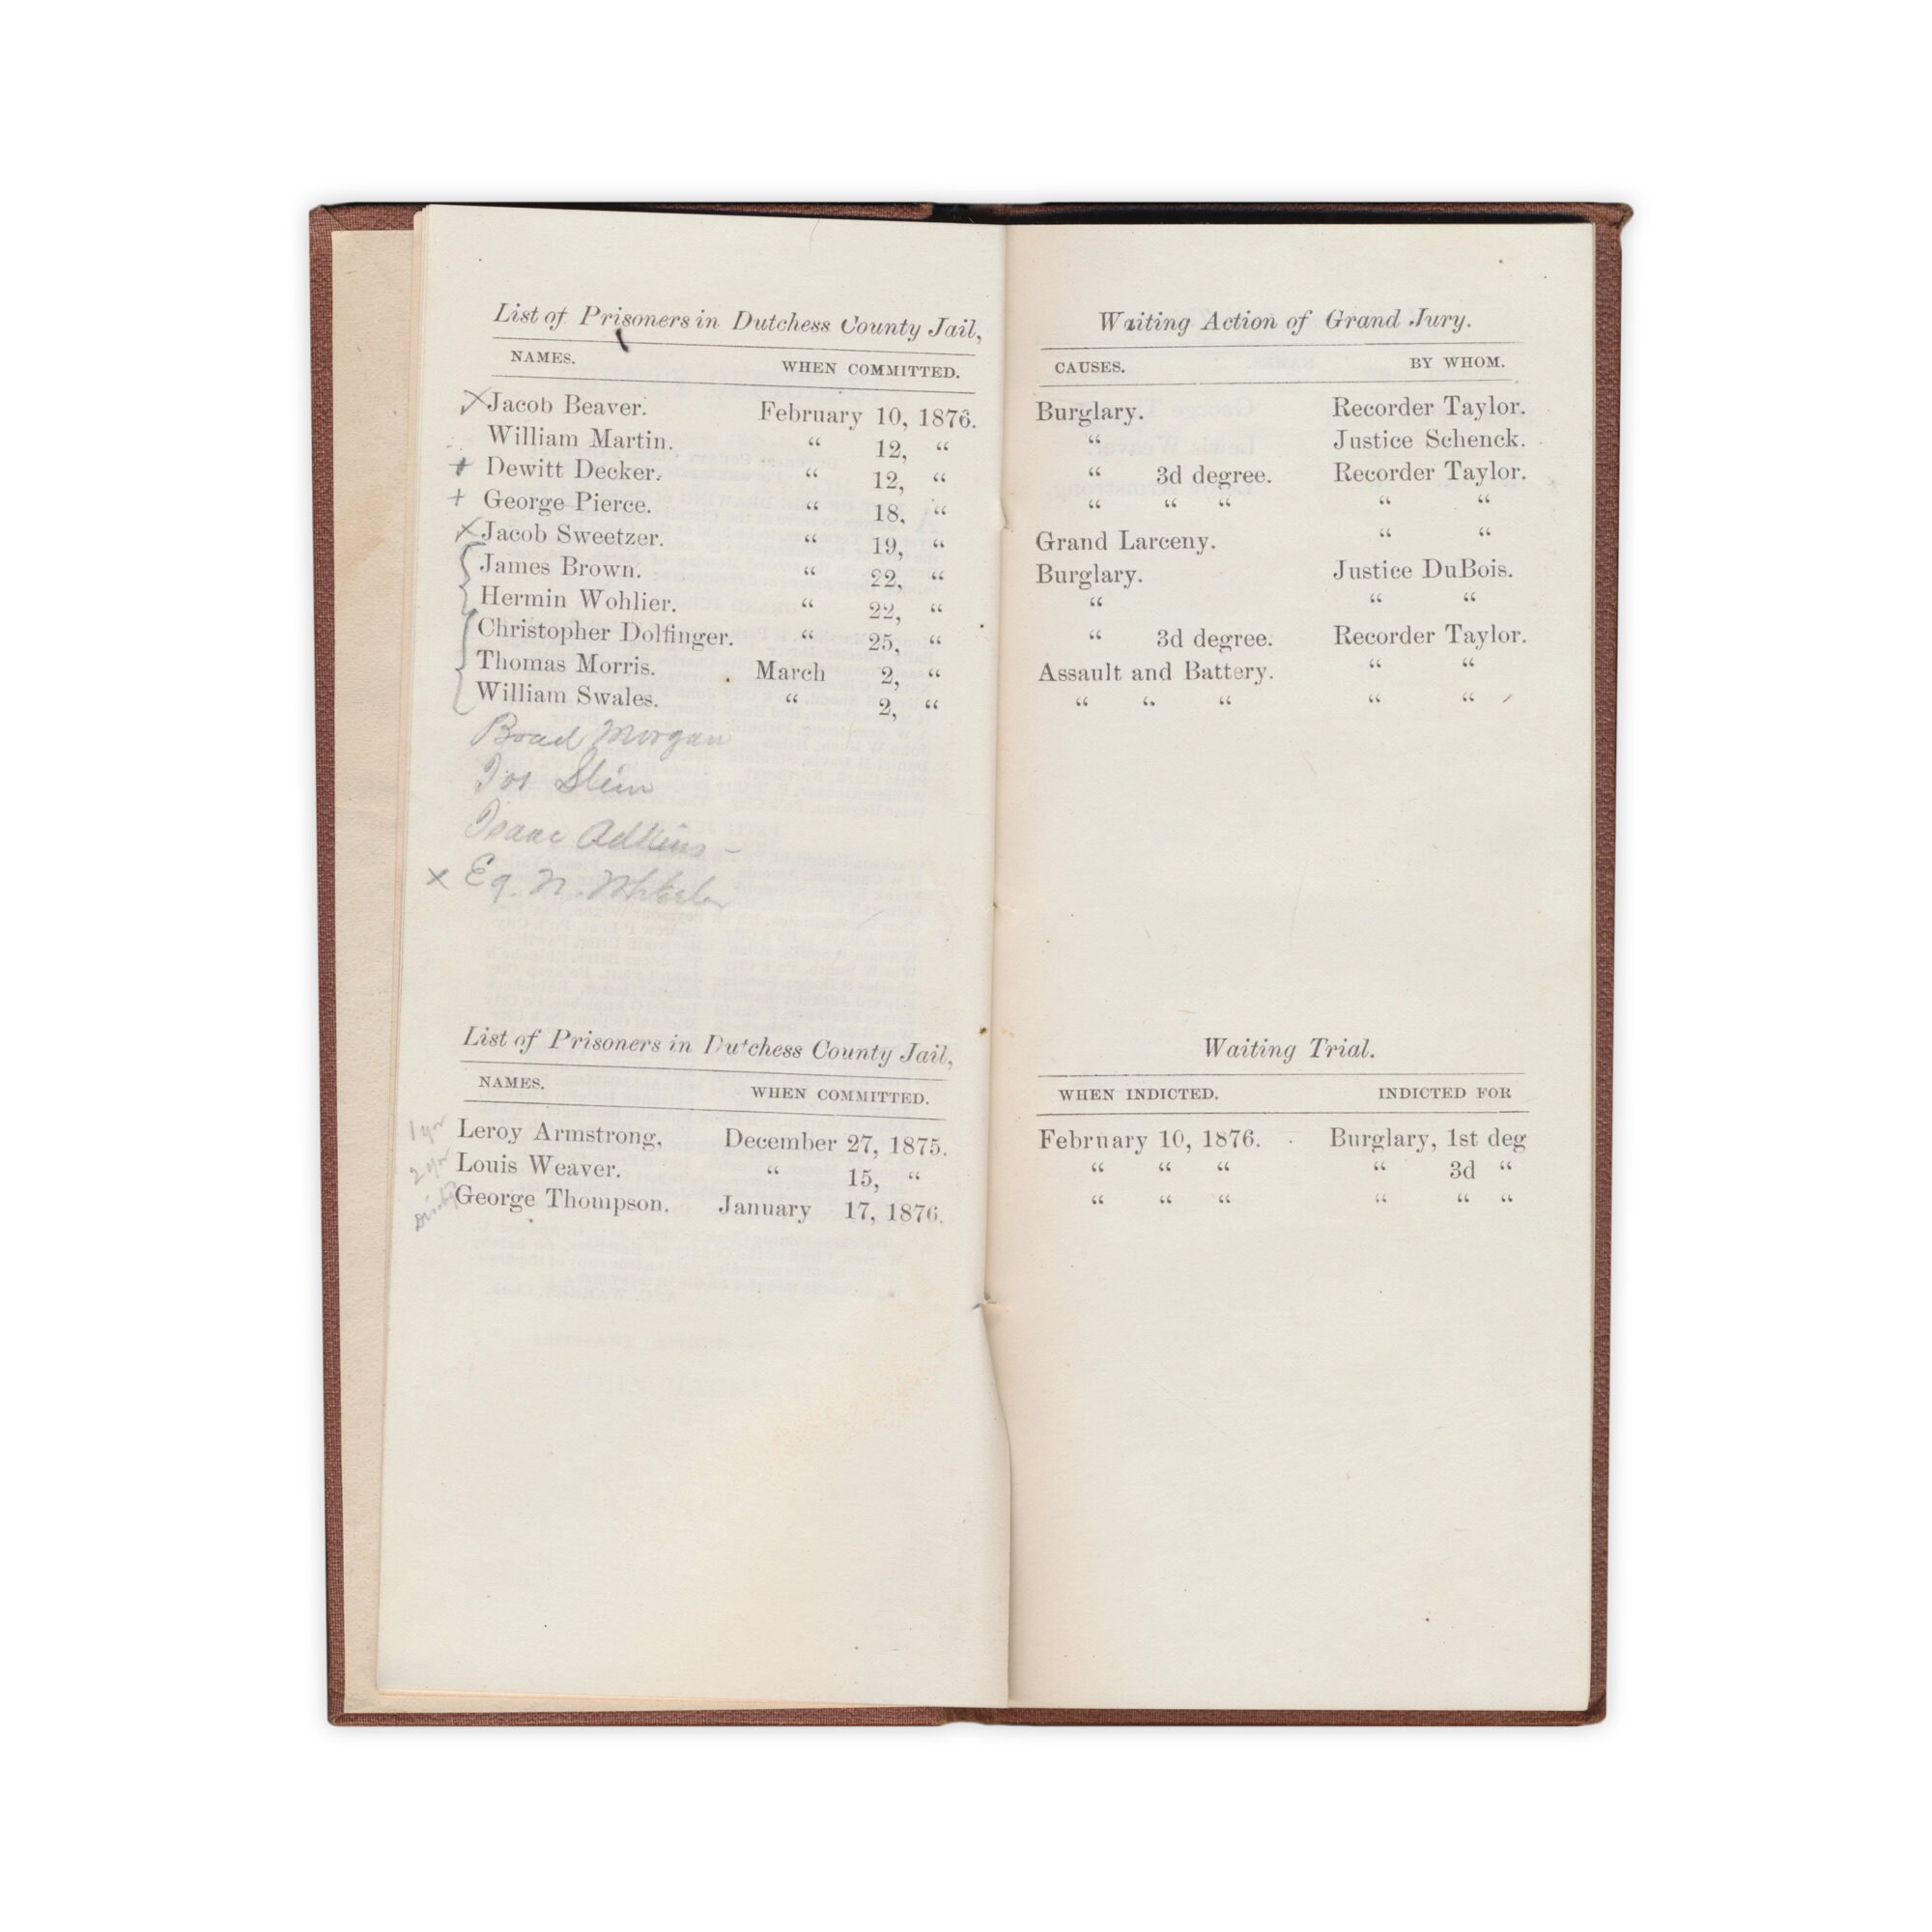 List of Prisoners in Dutchess County Jail,
NAMES. WHEN COMMITTED.
Jacob Beaver. February 10, 1876.
William Martin. “ 12, “
Dewitt Decker. “ 12, “
George Pierce. “ 18, “
Jacob Sweetzer. “ 19, “
James Brown. “ 22, “
Hermin Wohlier. “ 22, “
Christopher Dolfinger. “ 25, “
Thomas Morris. March 2, “
William Swales. “ 2, “
Morgan
Jos Stein
Isaac Adkins –
x
List of Prisoners in Dutchess County Jail,
NAMES. WHEN COMMITTED.
1 yr Leroy Armstrong, December 27, 1875.
2 yr Louis Weaver. “ 15, “
George Thompson. January 17, 1876.
Waiting Action of Grand Jury.
CAUSES. BY WHOM.
Burglary. Recorder Taylor.
“ Justice Schenck.
“ 3d degree. Recorder Taylor.
“ “ “ “ “
Grand Larceny. “ “
Burglary. Justice DuBois.
“ “ “
“ 3d degree. Recorder Taylor.
Assault and Battery. “ “
“ “ “ “ “
Waiting Trial.
WHEN INDICTED. INDICTED FOR
February 10, 1876. Burglary, 1st deg
“ “ “ “ 3d “
“ “ “ “ “ “